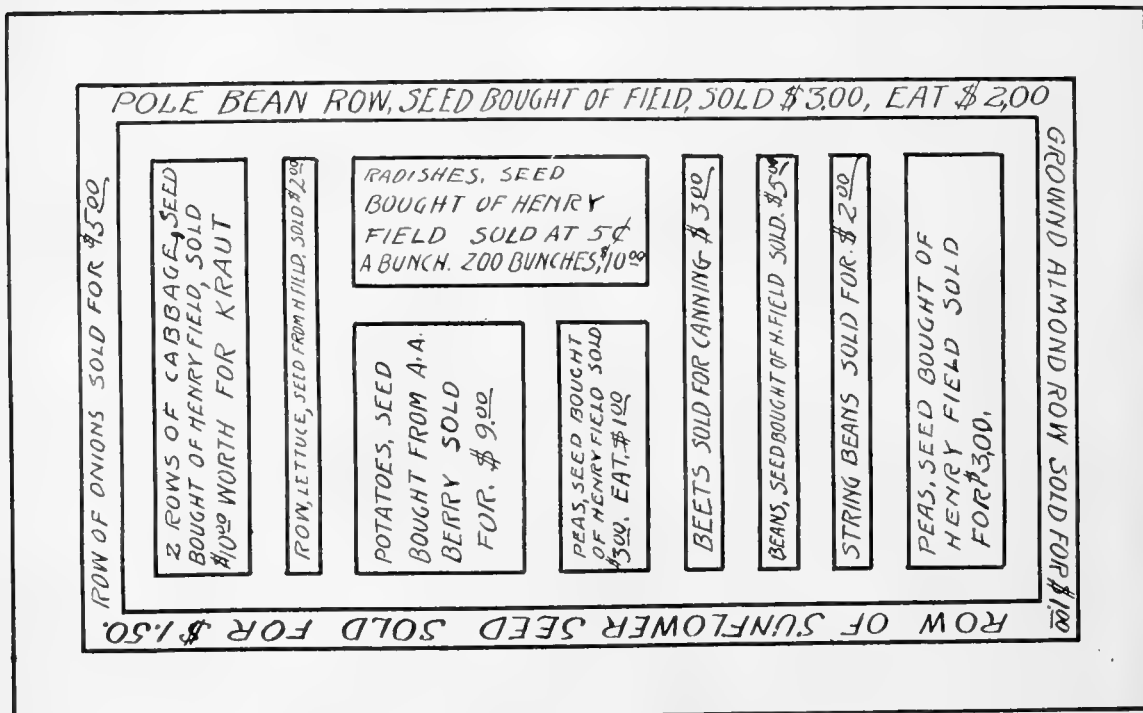 POLE BEAN ROW, SEED BOUGHT OF FIELD, SOLD $3.00, EAT $2.00
ROW OF ONIONS SOLD FOR $5.00
2 ROWS OF CABBAGE, SEED
BOUGHT OF HENRY FIELD, SOLD
$10.00 WORTH FOR KRAUT
ROW, LETTUCE, SEED FROM H FIELD, SOLD $2.00
RADISHES, SEED
BOUGHT OF HENRY
FIELD SOLD AT 5¢
A BUNCH. 200 BUNCHES, $10.00
POTATOES, SEED
BOUGHT FROM A.A.
BERRY SOLD
FOR. $ 9.00
PEAS, SEED BOUGHT
OF HENRY FIELD SOLD
$3.00. EAT. $1.00
BEETS SOLD FOR CANNING $3.00
BEANS, SEED BOUGHT OF H. FIELD SOLD. $5.00
STRING BEANS SOLD FOR. $2.00
PEAS, SEED BOUGHT OF
HENRY FIELD SOLD
FOR $3.00.
GROWND ALMOND ROW SOLD FOR $1.00
ROW OF SUNFLOWER SEED SOLD FOR $1.50.